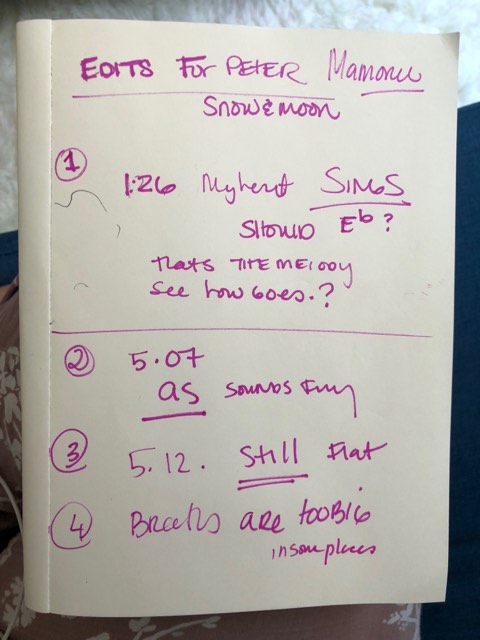 EDITS FOR PETER Mamorru
SNOW & MOON
1
1:26 My heart SINGS
SHOULD Eb ?
thats THE MELODY
See how Goes. ?
2
5.07
as sounds funny
3
5.12. Still Flat
4
Breaths are too BIG
in some places